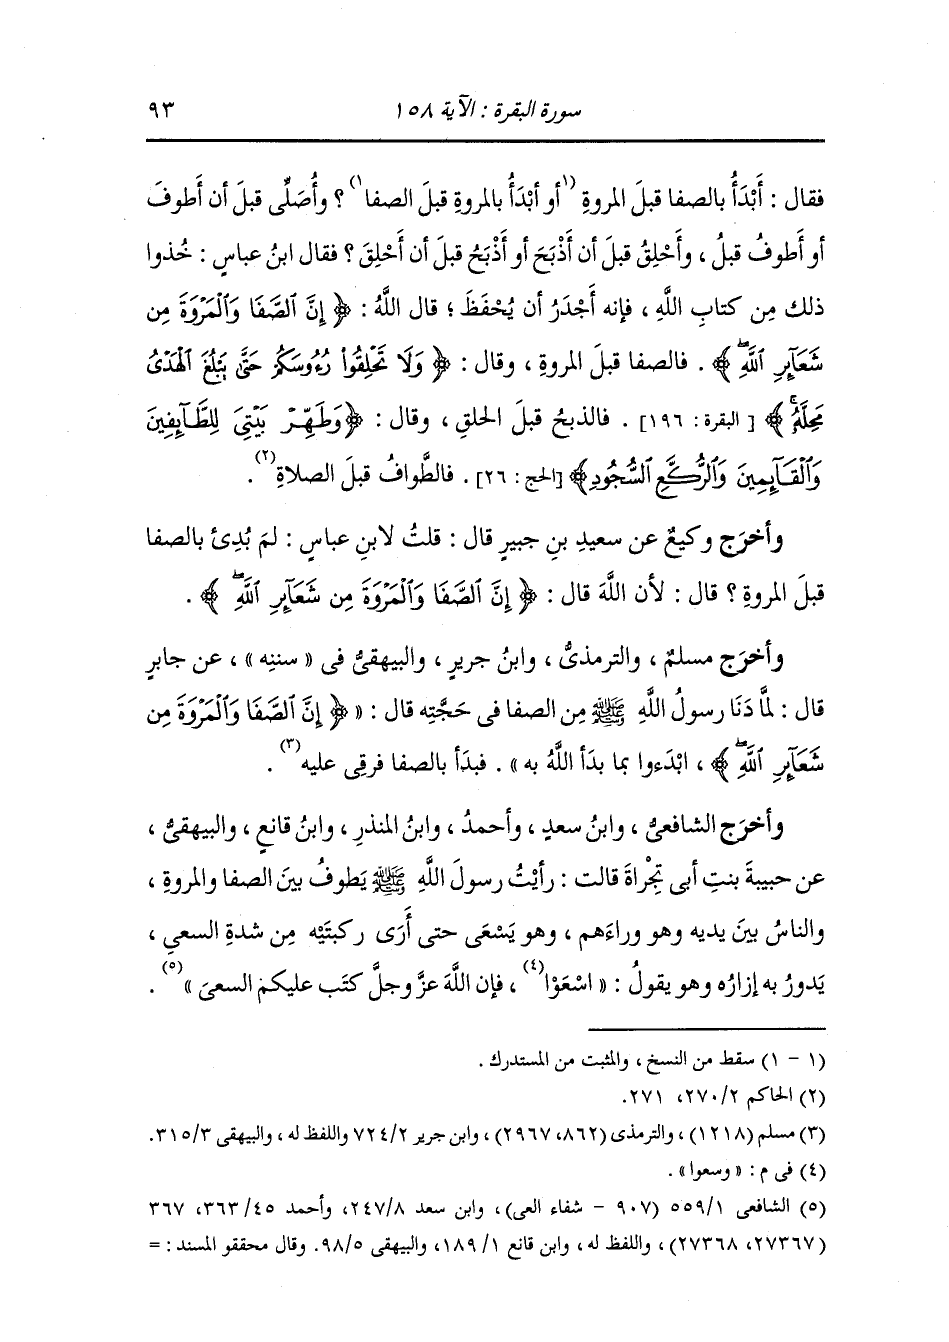 سورة البقرة : الآية ١٥٨ ٩٣
فقال : أَبْدَأُ بالصفا قبلَ المروةِ (١أو أبْدَأُ بالمروةِ قبلَ الصفا١) ؟ وأُصَلِّى قبلَ أن أَطوفَ
أو أَطوفُ قبلُ ، وأَحْلِقُ قبلَ أن أَذْبَحَ أو أَذْبَحُ قبلَ أن أَحْلِقَ ؟ فقال ابنُ عباسٍ : خُذوا
ذلك مِن كتابِ اللَّهِ ، فإنه أَجْدَرُ أن يُحْفَظَ ؛ قال اللَّهُ : ﴿ إِنَّ ٱلصَّفَا وَٱلْمَرْوَةَ مِن
شَعَآئِرِ ٱللَّهِۖ ﴾ . فالصفا قبلَ المروةِ ، وقال : ﴿ وَلَا تَحْلِقُوا۟ رُءُوسَكُمْ حَتَّىٰ يَبْلُغَ ٱلْهَدْىُ
مَحِلَّهُۥۚ ﴾ [ البقرة : ١٩٦] . فالذبحُ قبلَ الحلقِ ، وقال : ﴿ وَطَهِّرْ بَيْتِىَ لِلطَّآئِفِينَ
وَٱلْقَآئِمِينَ وَٱلرُّكَّعِ ٱلسُّجُودِ﴾ [الحج : ٢٦] . فالطَّوافُ قبلَ الصلاةِ(٢) .
وأخرَج وكيعٌ عن سعيدِ بنِ جبيرٍ قال : قلتُ لابنِ عباسٍ : لمَ بُدِئ بالصفا
قبلَ المروةِ ؟ قال : لأن اللَّهَ قال : ﴿ إِنَّ ٱلصَّفَا وَٱلْمَرْوَةَ مِن شَعَآئِرِ ٱللَّهِۖ ﴾ .
وأخرَج مسلمٌ ، والترمذىُّ ، وابنُ جريرٍ ، والبيهقىُّ فى « سننِه » ، عن جابرٍ
قال : لمَّا دَنَا رسولُ اللَّهِ ﷺ مِن الصفا فى حَجَّتِه قال : « ﴿ إِنَّ ٱلصَّفَا وَٱلْمَرْوَةَ مِن
شَعَآئِرِ ٱللَّهِۖ ﴾ ، ابْدَءوا بما بدَأ اللَّهُ به » . فبدَأ بالصفا فرقِى عليه(٣) .
وأخرَج الشافعىُّ ، وابنُ سعدٍ ، وأحمدُ ، وابنُ المنذرِ ، وابنُ قانعٍ ، والبيهقىُّ ،
عن حبيبةَ بنتِ أبى تِجْراةَ قالت : رأيْتُ رسولَ اللَّهِ ﷺ يَطوفُ بينَ الصفا والمروةِ ،
والناسُ بينَ يديه وهو وراءَهم ، وهو يَسْعَى حتى أَرَى ركبتَيْه مِن شدةِ السعىِ ،
يَدورُ به إزارُه وهو يقولُ : « اسْعَوْا(٤) ، فإن اللَّهَ عزَّ وجلَّ كتَب عليكم السعىَ »(٥) .
(١ - ١) سقط من النسخ ، والمثبت من المستدرك .
(٢) الحاكم ٢/ ٢٧٠، ٢٧١.
(٣) مسلم (١٢١٨) ، والترمذى (٨٦٢، ٢٩٦٧) ، وابن جرير ٢/ ٧٢٤ واللفظ له ، والبيهقى ٣/ ٣١٥.
(٤) فى م : « وسعوا » .
(٥) الشافعى ١/ ٥٥٩ (٩٠٧ - شفاء العى) ، وابن سعد ٨/ ٢٤٧، وأحمد ٤٥/ ٣٦٣، ٣٦٧
(٢٧٣٦٧، ٢٧٣٦٨) ، واللفظ له ، وابن قانع ١/ ١٨٩، والبيهقى ٥/ ٩٨. وقال محققو المسند : =